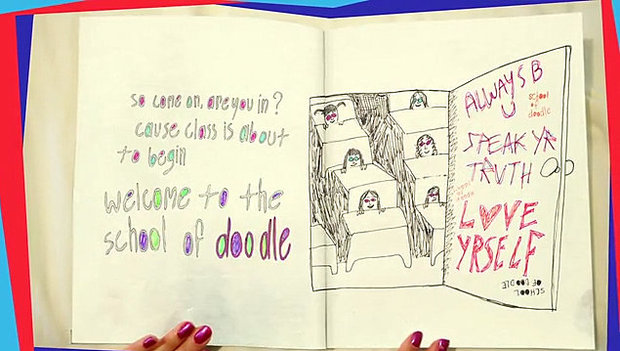 so come on, are you in?
cause class is about
to begin
welcome to the
school of doodle
ALWAYS B
school
of
doodle
SPEAK YR
TRUTH
LOVE
YRSELF
SCHOOL
OF DOODLE